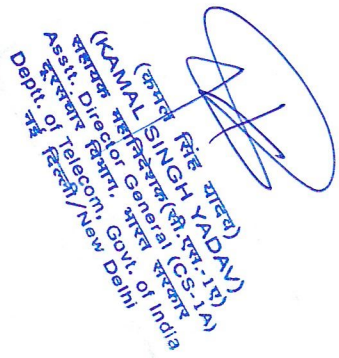 (कमल सिंह यादव)
(KAMAL SINGH YADAV)
सहायक महानिदेशक(सी.एस.-1ए)
Asstt. Director General (CS-1A)
दूरसंचार विभाग, भारत सरकार
Deptt. of Telecom, Govt. of India
नई दिल्ली/New Delhi